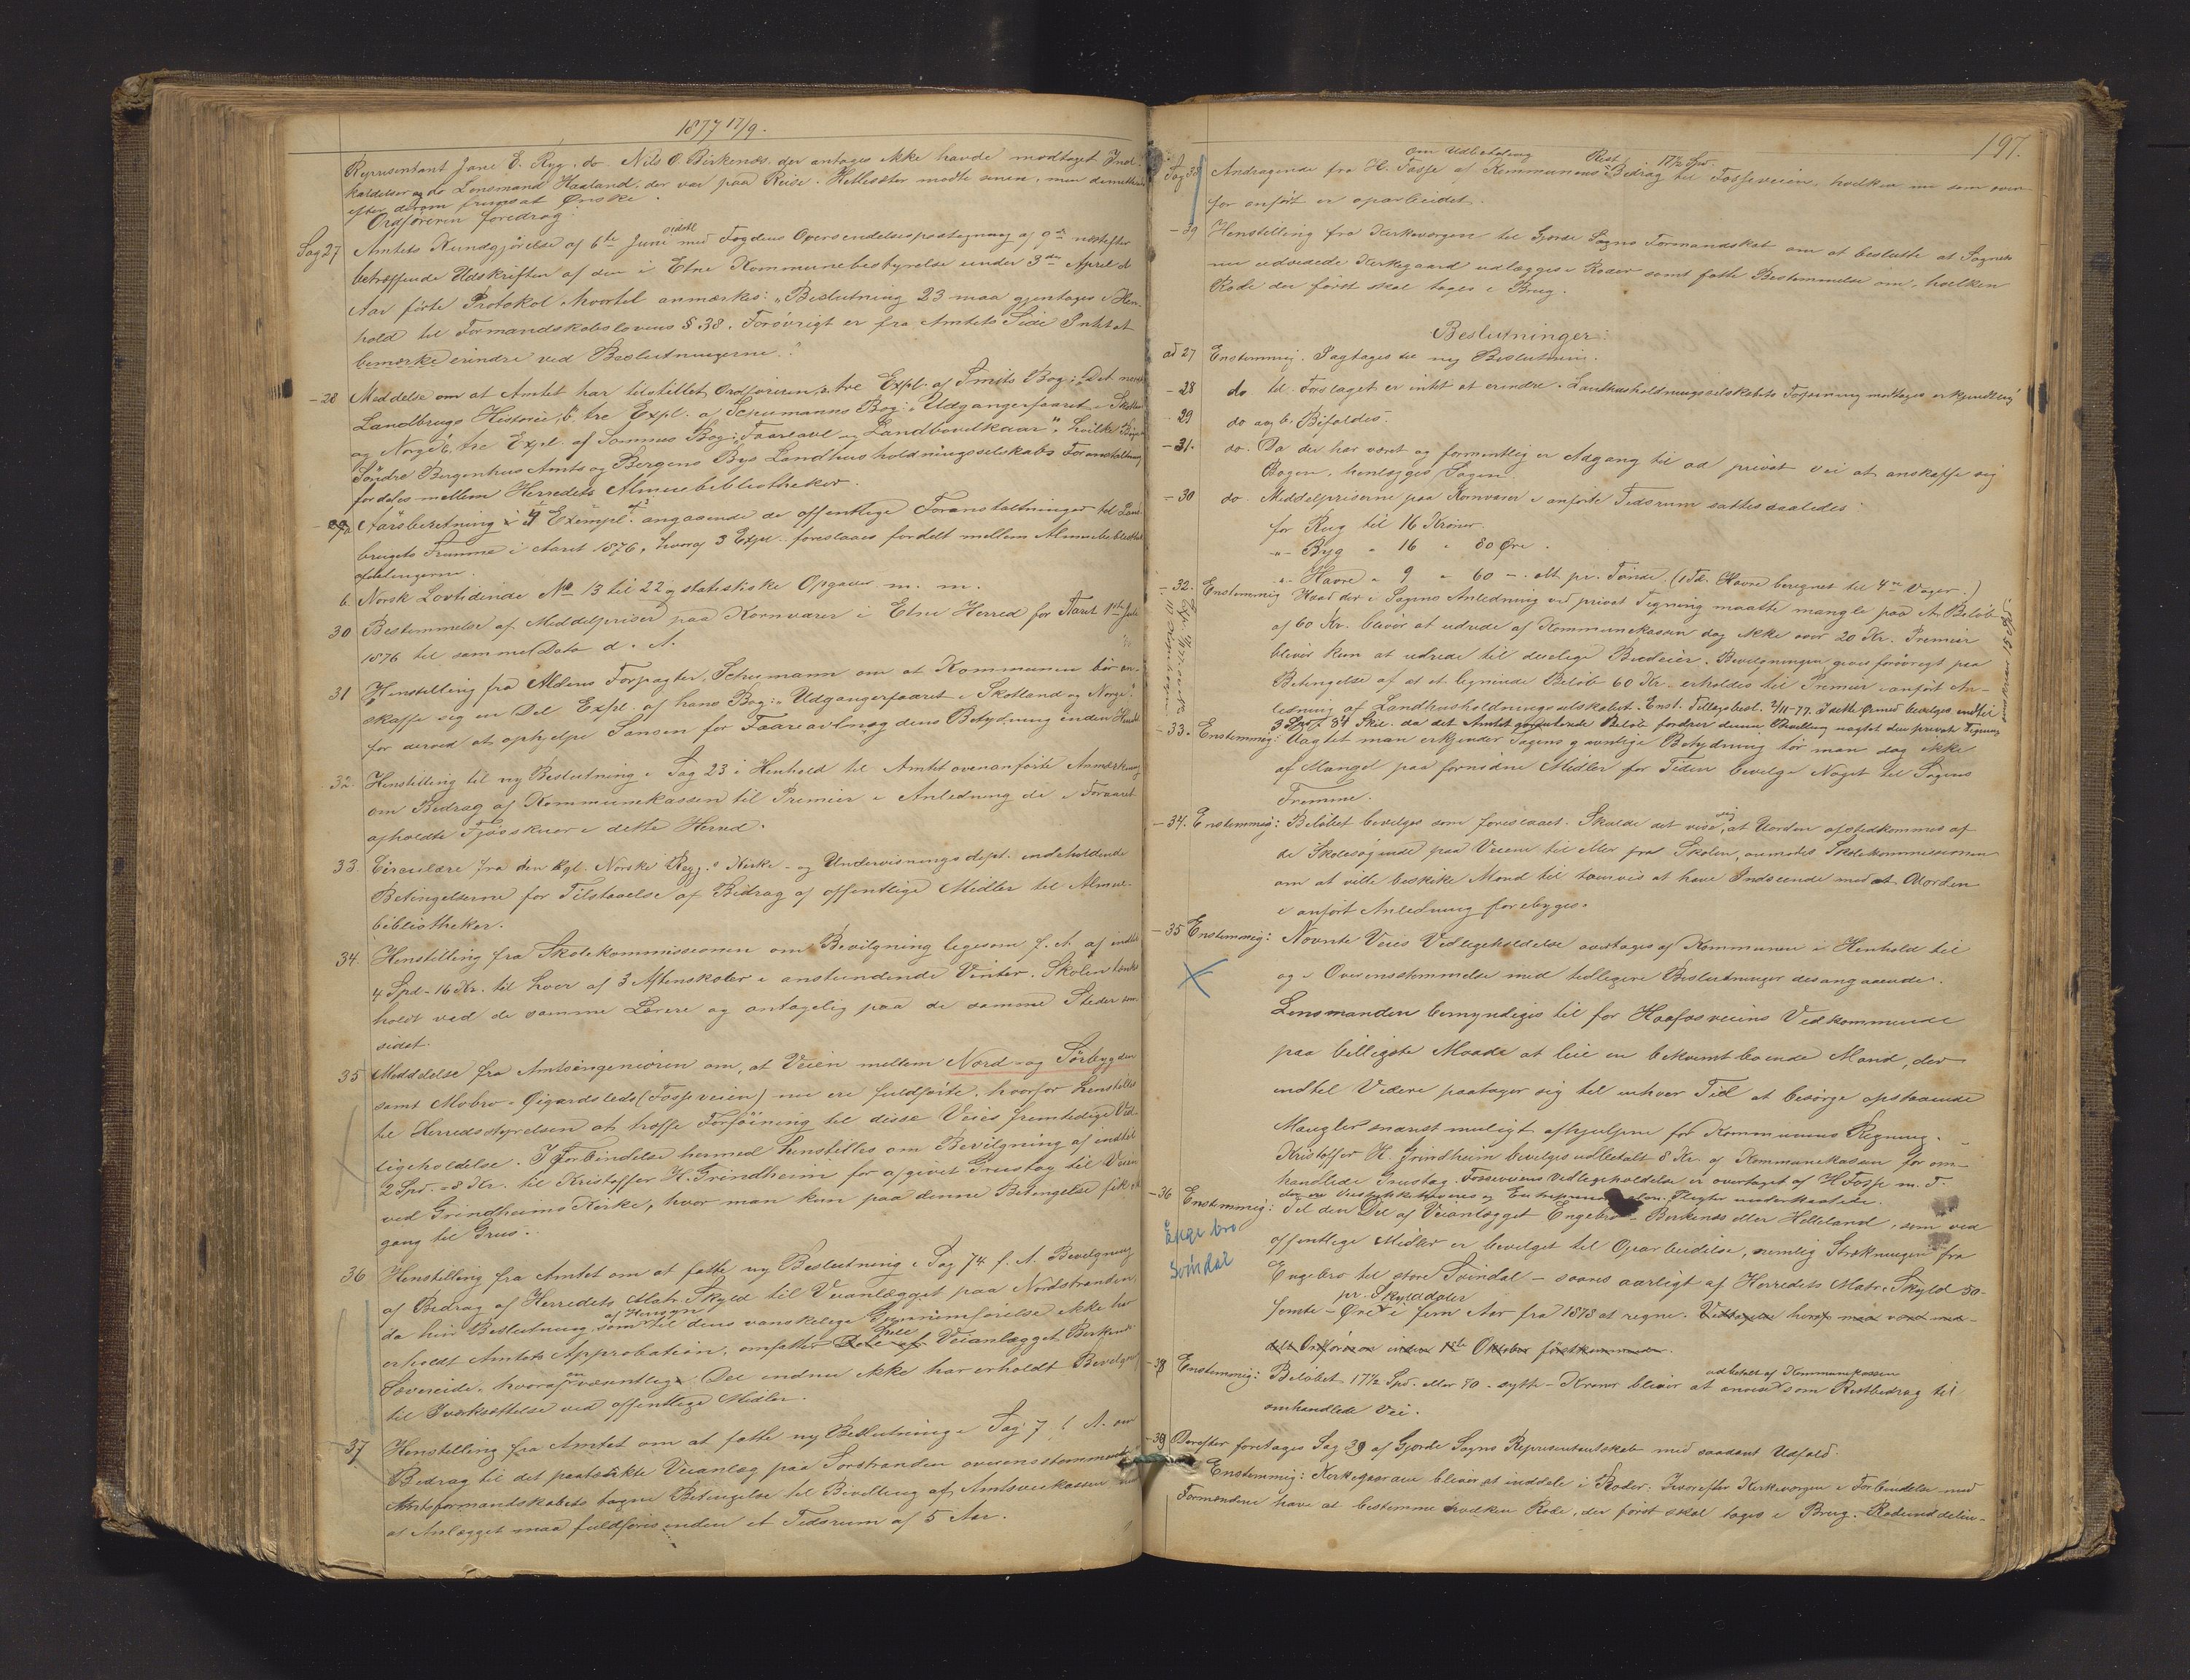 1877 17/9.
Repræsentant Jane E. Ryg, do Nils O. Birkenæs, der antages ikke havde modtaget Ind-
kaldelse og do Lensmand Haaland, der var paa Reise. Hetlesæter mødte senere, men
efter derom fremsat Ønske.
Ordføreren foredrog:
Sag 27 Amtets Kundgjørelse af 6te Juni sidstl med Fogdens Oversendelsespaategning af 9de næstefter
betræffende Udskriften af den i Etne Kommunebestyrelse under 3die April d
Aar førte Protokol hvortil anmærkes: "Beslutning 23 maa gjentages i Hen-
hold til Formandskabslovens § 38. Forøvrigt er fra Amtets Side Intet at
bemærke erindre ved Beslutningerne."
- 28 Meddelse om at Amtet har tilstillet Ordføreren a, tre Expl. af Smits Bog: "Det norske
Landbrugs Historie", b tre Expl. af Schumanns Bog: "Udgangerfaaret i Skotland
og Norge" c, tre Expl. af Sommes Bog: "Faareavl og Landbovelkaar", hvilke Bøger
Søndre Bergenhus Amts og Bergens Bys Landhusholdningsselskabs Foranstaltning
fordeles mellem Herredets Almuebibliotheker.
- 29 a Aarsberetning i 4 Exempl. angaaende de offentlige Foranstaltninger til Land-
brugets Fremme i Aaret 1876, hvoraf 3 Expl. foreslaaes fordelt mellem Almuebibliothek
afdelingerne.
b. Norsk Lovtidende No 13 til 22 og statistiske Opgaver m. m.
30 Bestemmelse af Middelpriser paa Kornvarer i Etne Herred for Aaret 1ste Juli
1876 til samme Dato d. A.
31 Henstilling fra Aldens Forpagter, Schumann om at Kommunen bør an-
skaffe sig en Del Expl. af hans Bog: "Udgangerfaaret i Skotland og Norge"
for derved at ophjelpe Sansen for Faareavlen og dens Betydning inden Herredet
32. Henstilling til ny Beslutning i Sag 23 i Henhold til Amtet ovenanførte Anmærkning
om Bidrag af Kommunekassen til Premier i Anledning de i Foraaret
afholdte Fjøsskuer i dette Herred.
33. Circulære fra den kgl. Norske Regj.s Kirke- og Undervisningsdept. indeholdende
Betingelserne for Tilstaaelse af Bidrag af offentlige Midler til Almue-
bibliotheker.
34. Henstilling fra Skolekommissionen om Bevilgning ligesom f. A. af indtil
4 Spd - 16 Kr. til hver af 3 Aftenskoler i anstundende Vinter. Skolen tænkt
holdt ved de samme Lærere og antagelig paa de samme Steder som
sidst.
35 Meddelelse fra Amtsingeniøren om, at Veien mellem Nord- og Sørbygden
samt Mobro-Øigardsleds (Fosseveien) nu ere fuldførte, hvorfor henstilles
til Herredsstyrelsen at træffe Forføining til disse Veies fremtidige Ved-
ligeholdelse. I Forbindelse hermed henstilles om Bevilgning af indtil
2 Spd. = 8 Kr. til Kristoffer H. Grindheim for afgivet Grustag til Veien
ved Grindheims Kirke, hvor man kun paa denne Betingelse fik
gang til Grus.
36 Henstilling fra Amtet om at fatte ny Beslutning i Sag 74 f. A. Bevilgning
af Bidrag af Herredets Matr. Skyld til Veianlægget paa Nordstranden
da hin Beslutning som af Hensyn til dens vanskelige Gjennemførelse ikke har
erholdt Amtets Approbation, omfatter Dele af hele Veianlægget Birkenæs
Sævereide, hvoraf en væsentlig Del endnu ikke har erholdt Bevilgning
til Iværksættelse ved offentlige Midler.
37 Henstilling fra Amtet om at fatte ny Beslutning i Sag 7 f. A. om
Bidrag til det paatænkte Veianlæg paa Sørstranden overensstemmende
Amtsformandskabets tagne Betingelse til Bevilling af Amtsveikassen
at Anlægget maa fuldføres inden et Tidsrum af 5 Aar.
197.
Sag 38 Andragende fra H. Fosse om Udbetaling af Kommunens Rest Bidrag 17½ Spd. til Fosseveien, hvilken nu som oven-
for anført er oparbeidet.
- 39 Henstilling fra Kirkeværgen til Gjerde Sogns Formandskab om at beslutte at Sognets
nu udvidede Kirkegaard udlægges i Roder samt fatte Bestemmelse om, hvilken
Rode der først skal tages i Brug.
Beslutninger:
ad 27 Enstemmig. Sagtages til ny Beslutning.
- 28 do til Forslaget er intet at erindre. Landhusholdningsselskabets Foræring modtages erkjendtlig
- 29 do a og b. Bifaldes.
- 31. do. Da der har været og formentlig er Adgang til ad privat Vei at anskaffe sig
Bogen, henlægges Sagen.
- 30 do. Middelpriserne paa Kornvarer i anførte Tidsrum sattes saaledes:
for Rug til 16 Kroner.
-"- Byg " 16 " 80 Øre.
-"- Havre " 9 " 60 - alt pr. Tønde. (1 Td. Havre beregnet til 4re Vager.)
- 32. Enstemmig Hvad der i Sagens Anledning ved privat Tegning maatte mangle paa et Beløb
af 60 Kr. bliver at udrede af Kommunekassen dog ikke over 20 Kr. Premier
bliver kun at udrede til duelige Budeier. Bevilgningen gives forøvrigt paa
Betingelse af at et lignende Beløb 60 Kr. erholdes til Premier i anført An-
ledning af Landhusholdningsselskabet. Enst. Tillægsbesl. 2/11-77. I dette Øiemed bevilges indtil
3 Spd. 84 Skil. da det Amtet Beløb fordrer denne uagtet den private Tegning
- 33. Enstemmig: Uagtet man erkjender Sagens gavnlige Betydning tør man dog ikke
af Mangel paa fornødne Midler for Tiden bevilge Noget til Sagens
Fremme.
- 34. Enstemmig: Beløbet bevilges som foreslaaet. Skulde det vise sig, at Uorden afstedkommes af
de Skolesøgende paa Veiene til eller fra Skolen, anmodes Skolekommissionen
om at ville beskikke Mænd til at have Indseende med at Uorden
i anført Anledning forebygges.
- 35 Enstemmig: Nævnte Veies Vedligeholdelse overtages af Kommunen i Henhold til
og i Overensstemmelse med tidligere Beslutninger desangaaende.
Lensmanden bemyndiges til for Haafosveiens Vedkommende
paa billigste Maade at leie en bekvemt boende Mand, der
indtil Videre paatager sig til enhver Tid at besørge opstaaende
Mangler snarest muligt afhjulpne for Kommunens Regning.
Kristoffer H. Grindheim bevilges udbetalt 8 Kr. af Kommunekassen for om-
handlede Grustag. Fosseveiens Vedligeholdelse er overtaget af H. Fosse m. F.
- 36 Enstemmig: Til den Del af Veianlægget Engebro - Birkenæs eller Helleland, som ved
Engebro
Svindal
offentlige Midler er bevilget til Oparbeidelse, nemlig Strækningen fra
Engebro til store Svindal - svares aarligt af Herredets Matr. Skyld 50-
femti - Øre pr. Skylddaler i fem Aar fra 1878 at regne.
delt Ordføreren inden 1ste Oktober førstkommende.
- 38 Enstemmig: Beløbet 17½ Spd. eller 70 - sytti - Kroner bliver at anvise udbetalt af Kommunekassen som Restbidrag til
omhandlede Vei.
- 39 Derefter foretages Sag 39 af Gjerde Sogns Repræsentantskab med saadant Udfald:
Enstemmig: Kirkegaarden bliver at inddele i Roder, hvorefter Kirkeværgen i Forbindelse med
Formændene have at bestemme hvilken Rode, der først skal tages i Brug. Rodeinddelin-